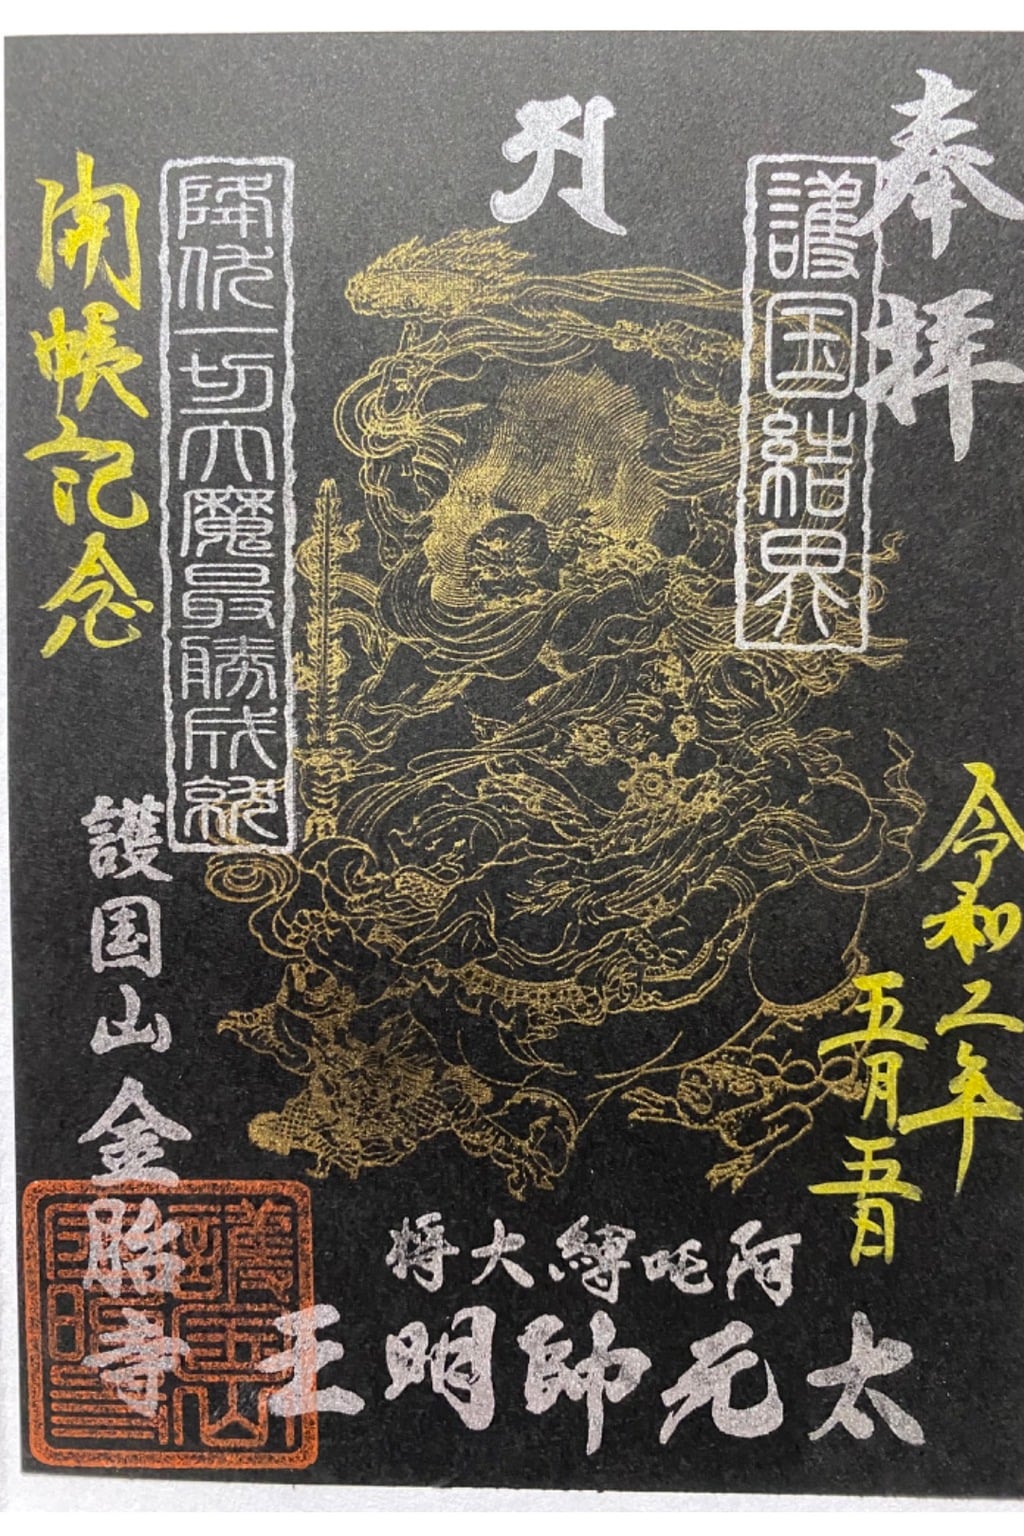 奉拝
護国結界
令和二年
五月五日
阿吒縛大将
太元帥明王
降伏一切大魔最勝成就
開帳記念
護国山
金胎寺